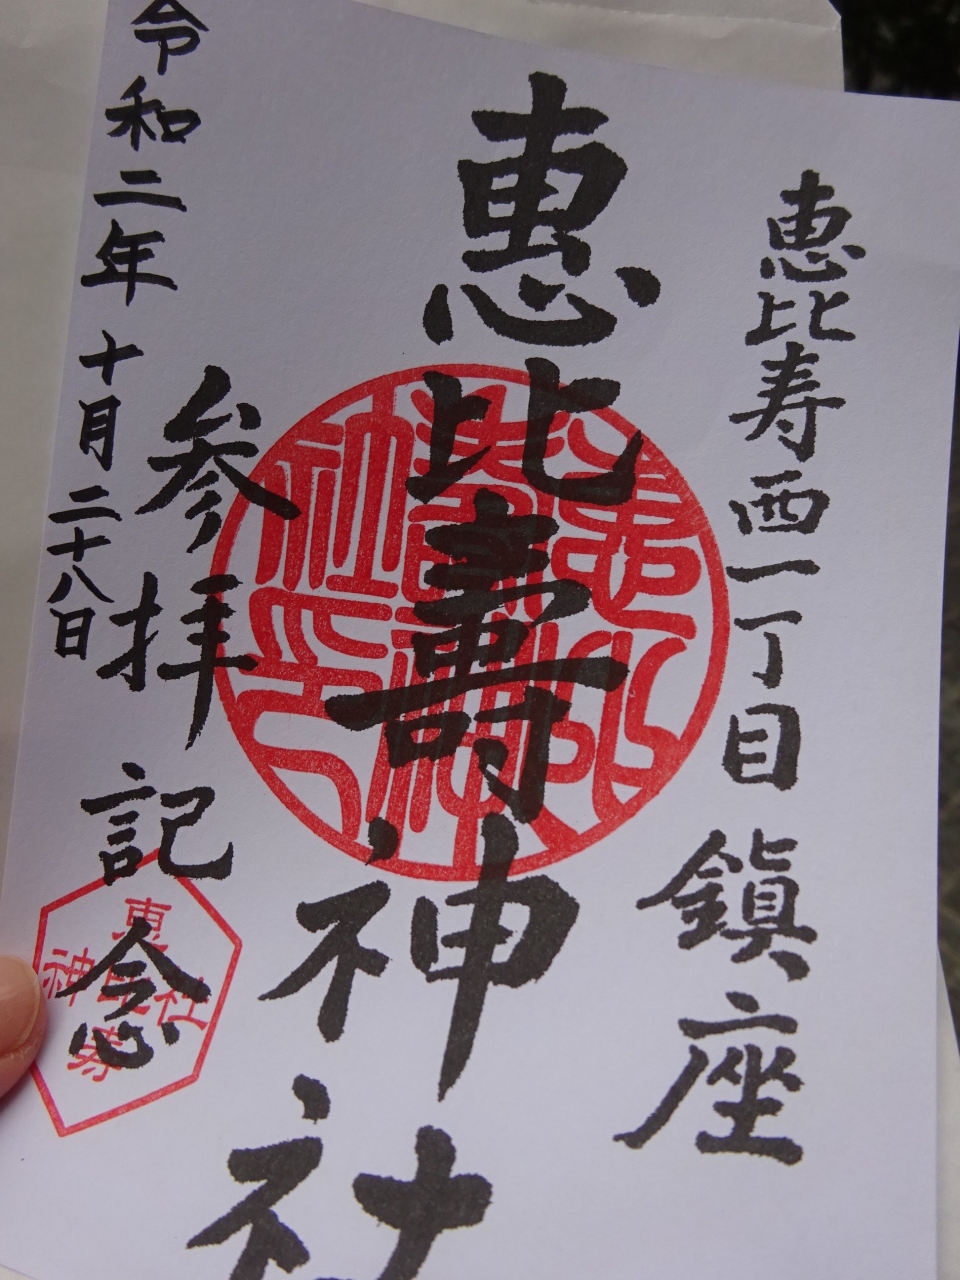 恵比寿西一丁目 鎮座
恵比壽神社
参拝記念
令和二年 十月 二十八日
恵
神比社
寿